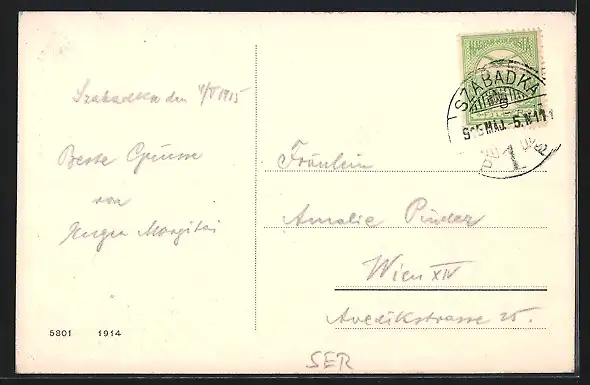 Szabadka den 4/V 1915
Beste Grüsse
von
SZABADKA
915 MAJ. 5. N 11
1
Fräulein
Amalie Pinder
Wien XIV
Avedikstrasse 25.
5801 1914
SER